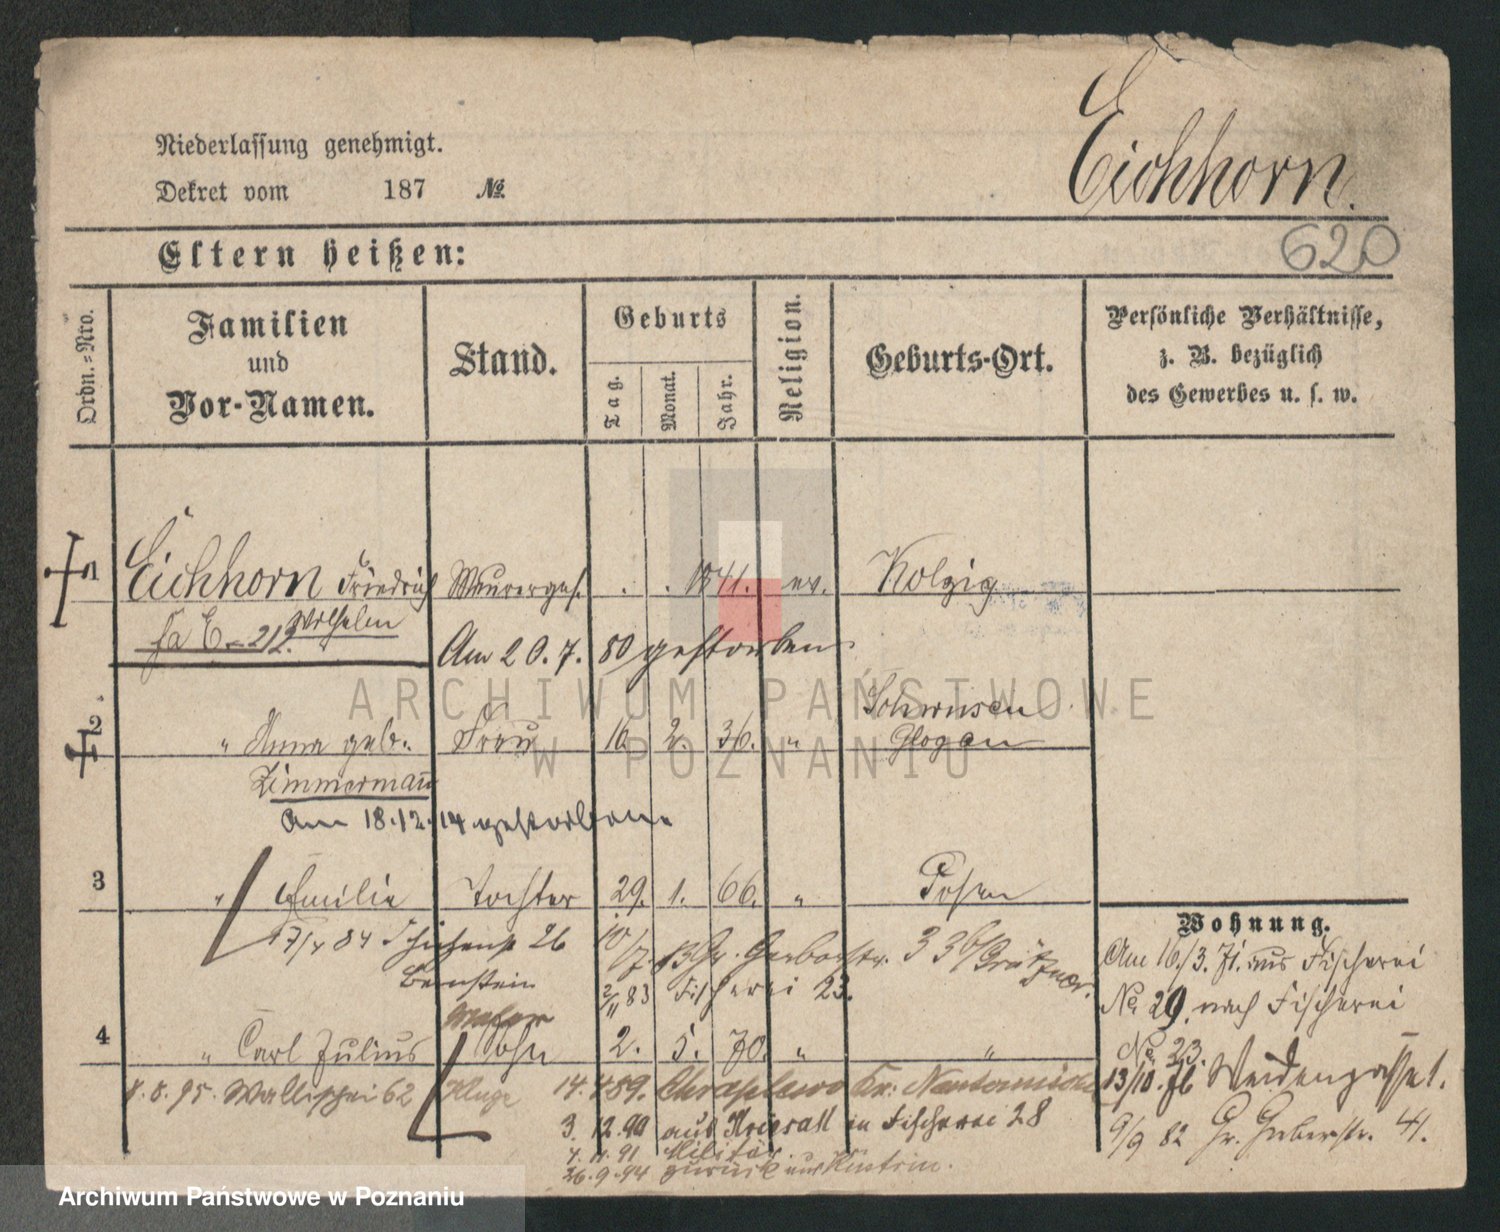 Eichhorn.
Niederlassung genehmigt.
Dekret vom 187 No.
620
Eltern heißen:
Ordn.-Nro.
Familien
und
Vor-Namen.
Stand.
Geburts
Tag.
Monat.
Jahr.
Religion.
Geburts-Ort.
Persönliche Verhältnisse,
z. B. bezüglich
des Gewerbes u. s. w.
1 Eichhorn Friedrich Maurerges. . . 1841. ev. Kolzig
Wilhelm
fa E-212.
Am 20. 7. 80 gestorben
2 " Anna geb. Frau 16. 2. 36. " Schwusen
Glogau
Zimmermann
Am 18.12.14 gestorben
3 " Emilie Tochter 29. 1. 66. " Posen
17/4 84 26
Bernstein
10/7. 13 Gr. Gerberstr. 33b/Grätzner.
2/11 83 Fischerei 23.
4 " Carl Julius Sohn 2. 5. 70. " "
8.8.95. Wallischei 62 Kluge 14.4.89. Chraplewo Kr. Neutomischel
3.12.90 aus in Fischerei 28
4.11.91 Militär.
26.9.94 zurück aus Küstrin.
Wohnung.
Am 16./3. 71. aus Fischerei
No 29. nach Fischerei
No 23.
13/10. 76 Weidengasse 1.
9/9 82 Gr. Gerberstr. 41.
ARCHIWUM PAŃSTWOWE
W POZNANIU
Archiwum Państwowe w Poznaniu